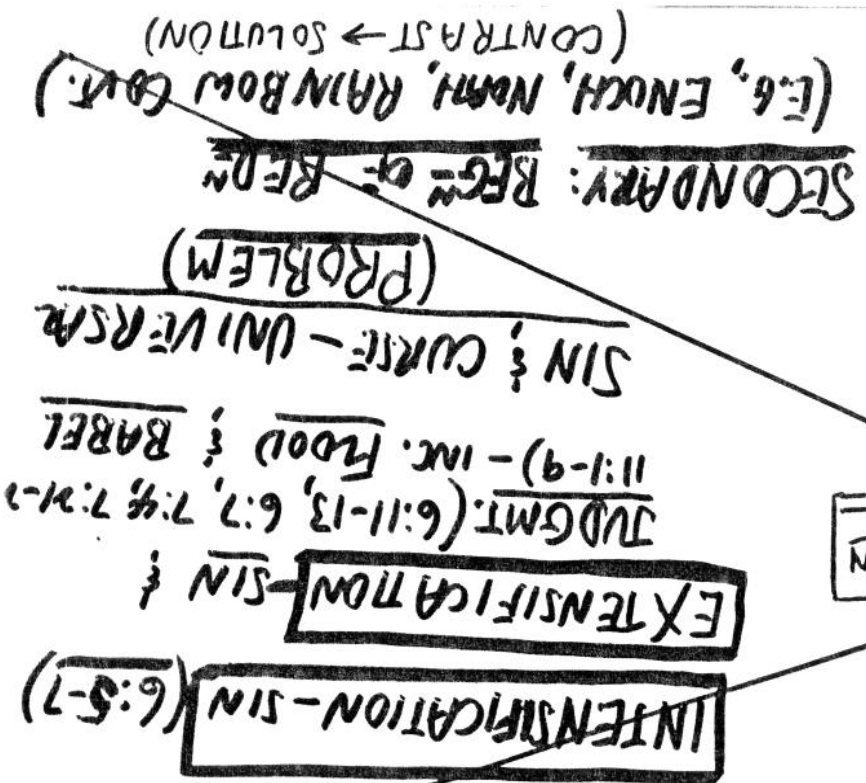 INTENSIFICATION - SIN (6:5-7)
EXTENSIFICATION - SIN &
JUDGMT. (6:11-13, 6:7, 7:4, 7:21-
11:1-9) - INC. FLOOD & BABEL
SIN & CURSE - UNIVERSAL
(PROBLEM)
SECONDARY: BEGN OF REDN
(E.G., ENOCH, NOAH, RAINBOW COVT.)
(CONTRAST → SOLUTION)
N